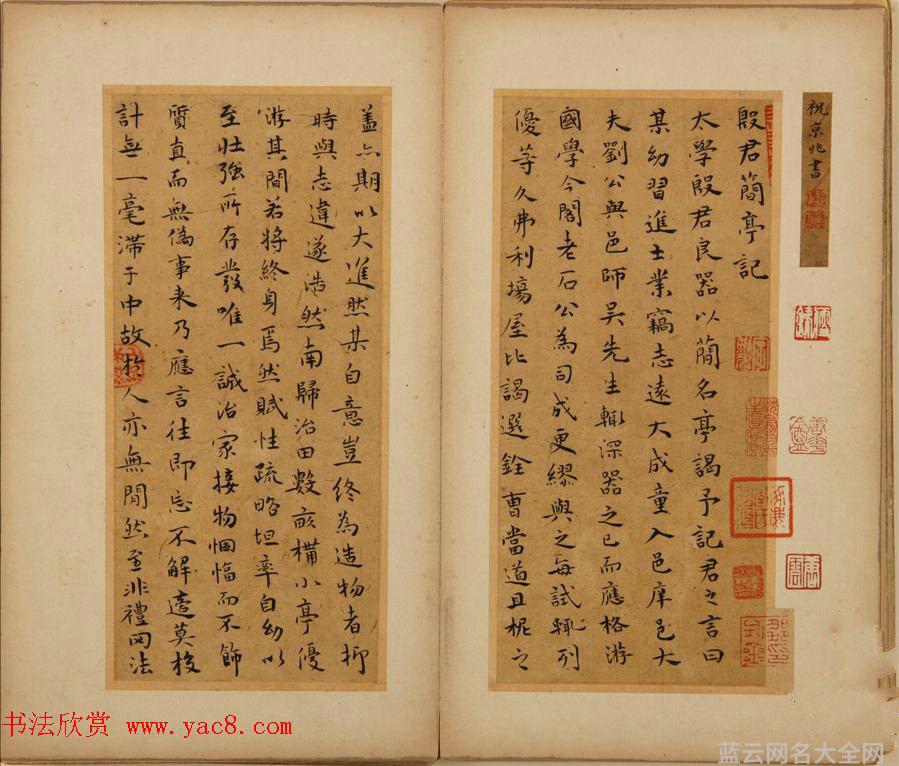 祝京兆書
殷君簡亭記
太學殷君民器以簡名亭謁予記君之言曰
某幼習進士業竊志遠大成童入邑庠邑大
夫劉公與邑師吳先生輙深器之已而應格游
國學今閣老石公為司成更繆與之每試輒列
優等久弗利場屋比謁選銓曹當道且柅之
盖亦期以大進然某自意豈終為造物者抑
時與志違遂浩然南歸治田數畝構小亭優
游其間若將終身焉然賦性疏略坦率自幼以
至壯強所存發唯一誠治家接物悃愊而不飾
質直而無偽事来乃應言往即忘不解逺莫校
計無一毫滞于中故於人亦無間然至非禮罔法
书法欣赏 www.yac8.com
蓝云网名大全网